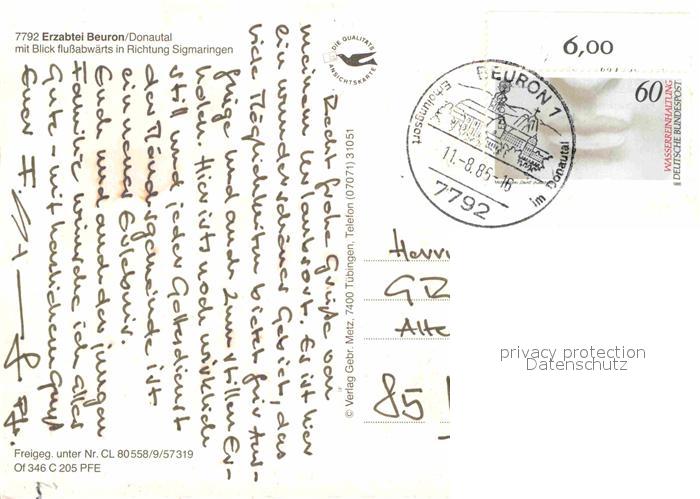 7792 Erzabtei Beuron/Donautal
mit Blick flußabwärts in Richtung Sigmaringen
DIE QUALITÄTS
ANSICHTSKARTE
6,00
60
WASSERREINHALTUNG
DEUTSCHE BUNDESPOST
BEURON 1
Erholungsort
11.-8.86-16
7792
im Donautal
Recht frohe Grüße von
meinem Urlaubsort. Es ist hier
ein wunderschönes Gebiet, das
viele Möglichkeiten bietet für Aus-
flüge und auch zum stillen Er-
holen. Hier ist's noch wirklich
still und jeder Gottesdienst
der Mönchsgemeinde ist
ein neues Erlebnis.
Euch und auch der jungen
Familie wünsche ich alles
Gute - mit herzlichem Gruß
Euer F.
© Verlag Gebr. Metz, 7400 Tübingen, Telefon (07071) 31051
Herrn
Alte
85
privacy protection
Datenschutz
Freigeg. unter Nr. CL 80558/9/57319
Of 346 C 205 PFE